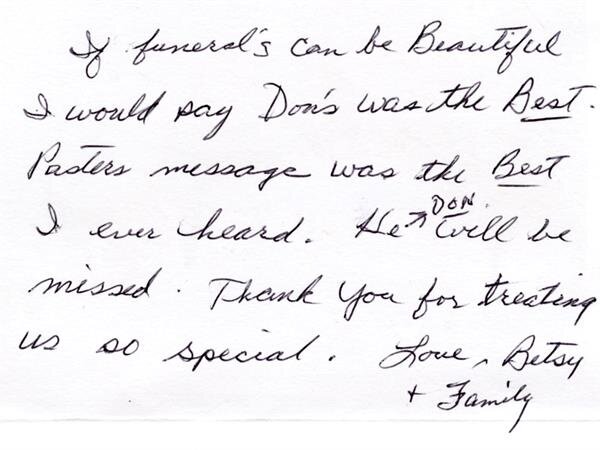 If funeral's can be Beautiful
I would say Don's was the Best.
Pasters message was the Best
I ever heard. He → DON will be
missed. Thank You for treating
us so special. Love, Betsy
+ Family